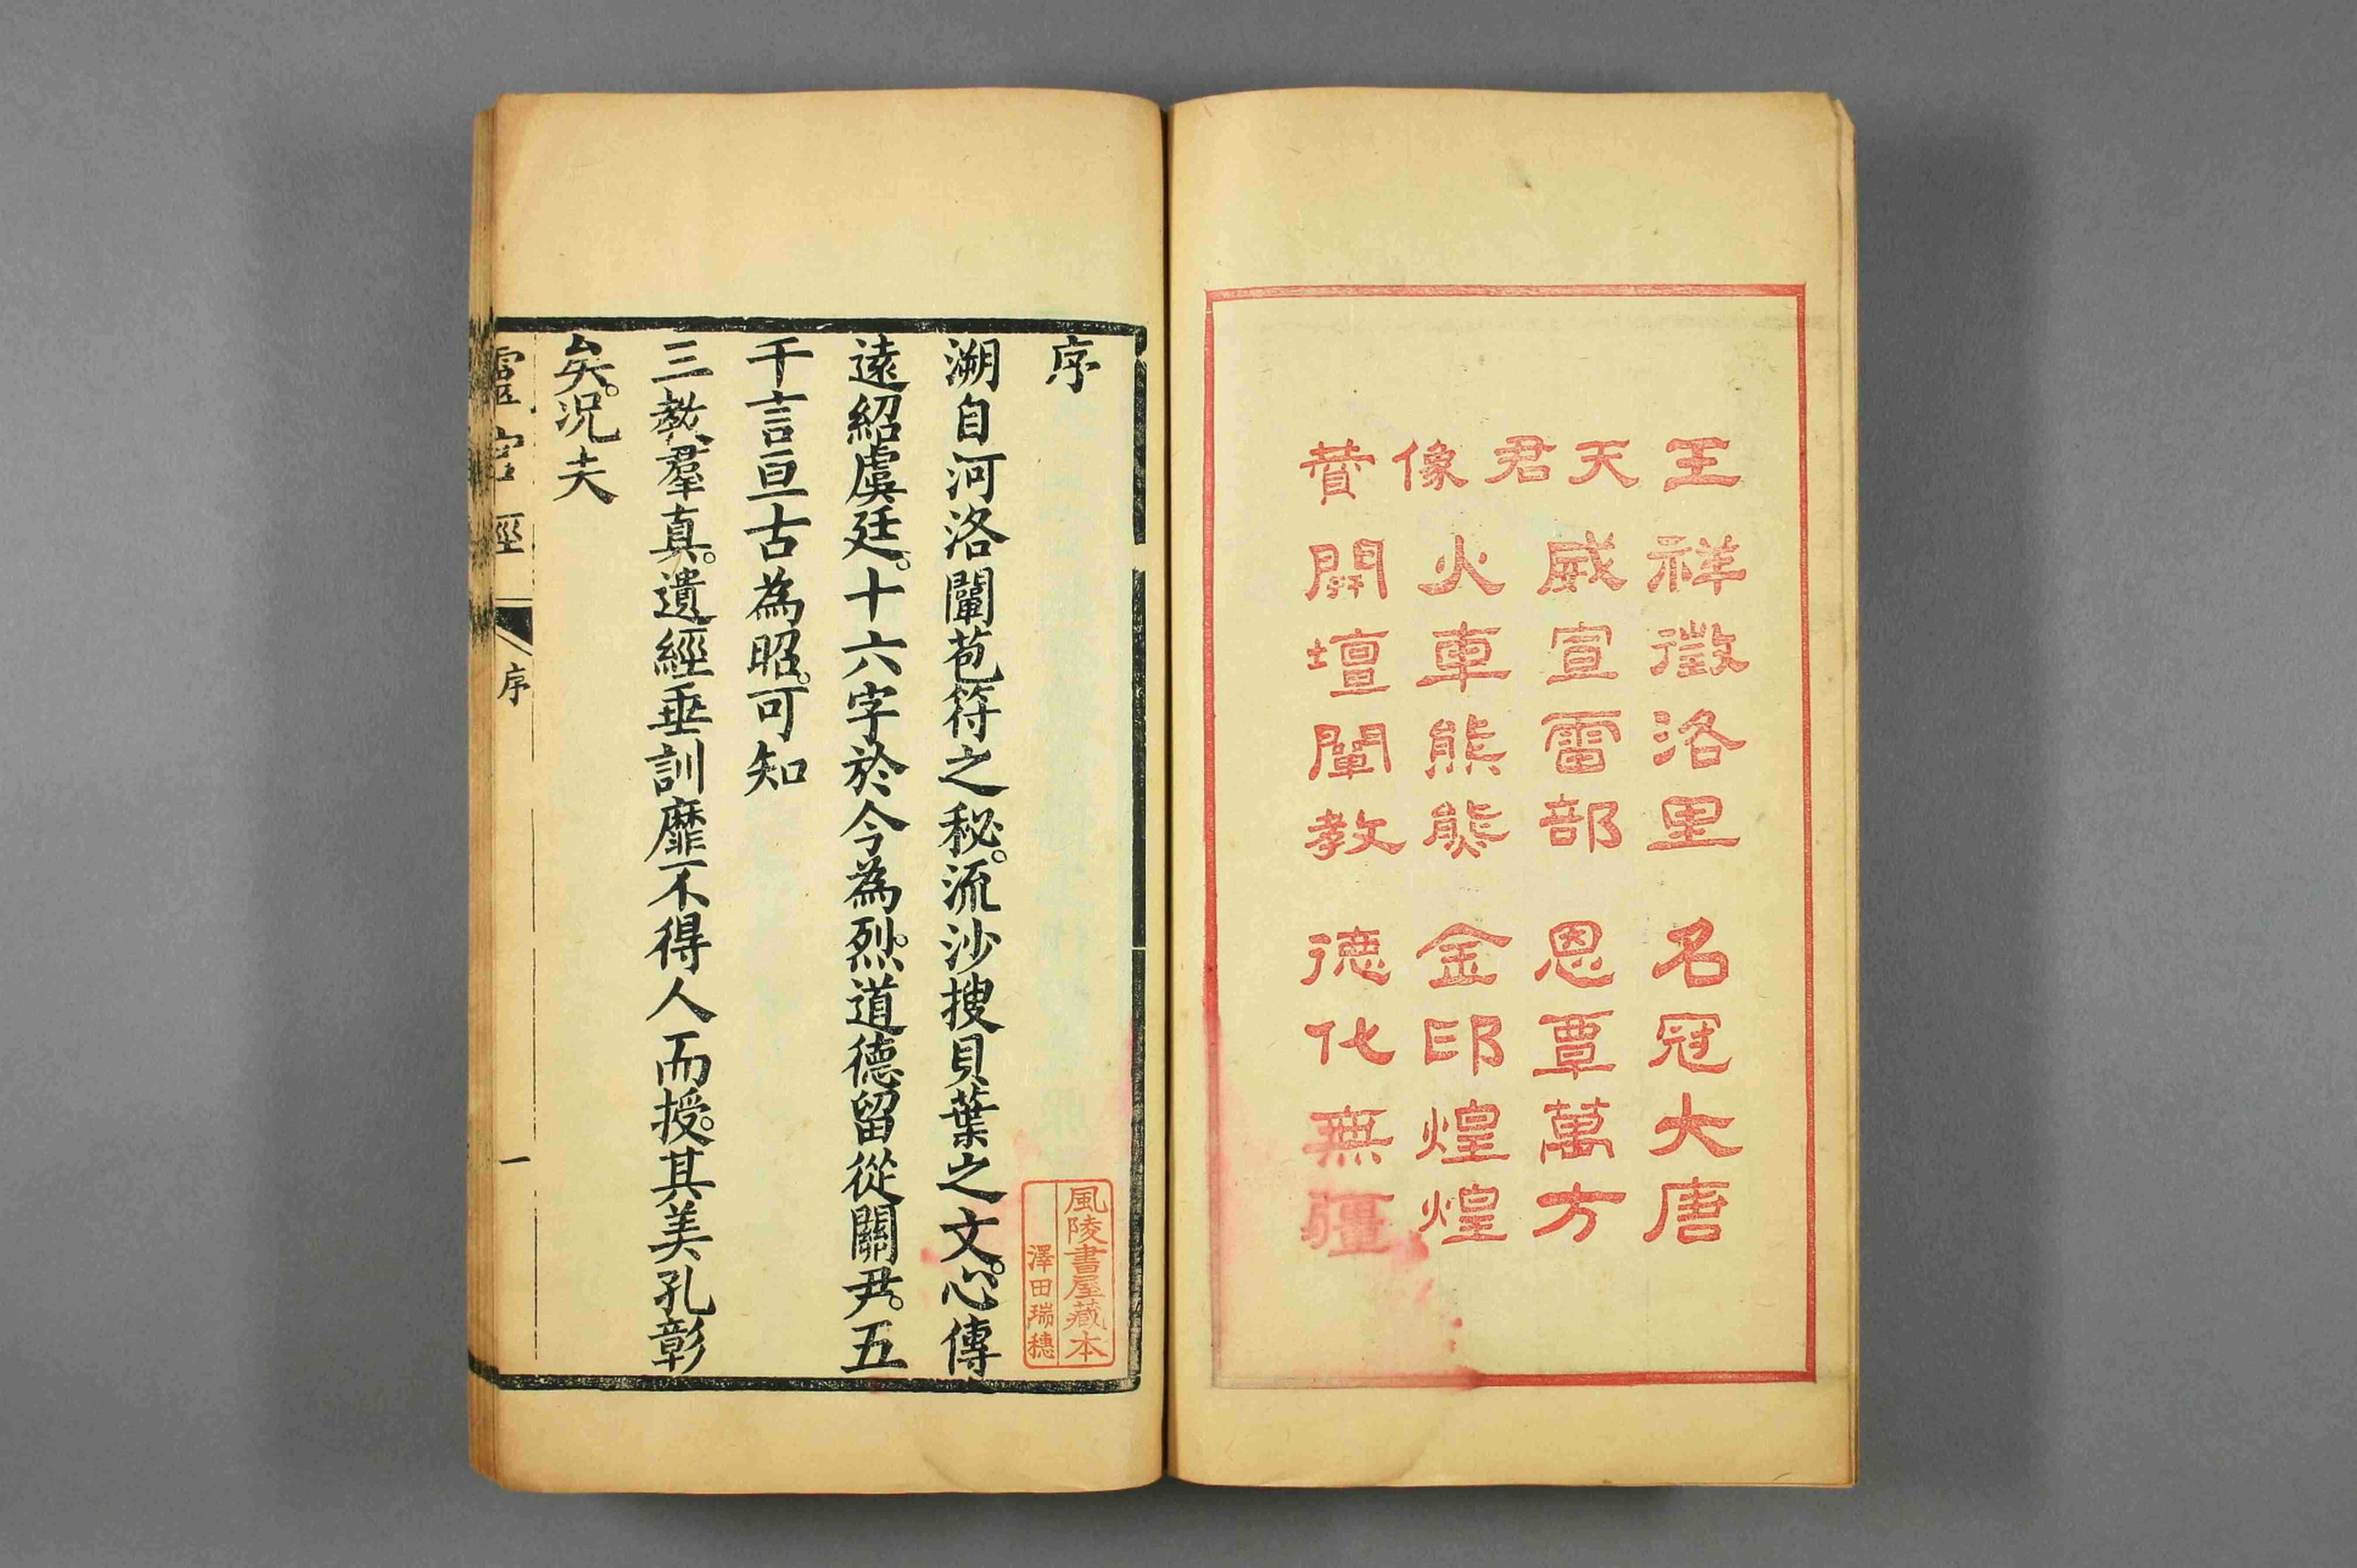 王天君像贊
祥徵洛里　名冠大唐
威宣雷部　恩覃萬方
火車熊熊　金印煌煌
開壇闡教　德化無疆
序
溯自河洛闡苞符之秘。流沙搜貝葉之文。心傳
遠紹虞廷。十六字於今為烈。道德留從關尹。五
千言亘古為昭。可知
三教羣真。遺經垂訓靡不得人而授。其美孔彰
矣。況夫
靈官經　序　一
風陵書屋藏本
澤田瑞穗